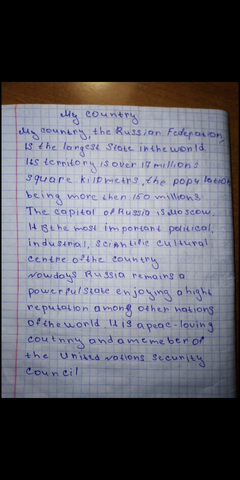 My country
My country, the Russian Federation,
is the largest state in the world.
Its territory is over 17 millions
square kilometrs, the population
being more then 150 millions
The capital of Russia is Moscow.
It is the most important political,
industrial, scientific cultural
centre of the country
Nowdays Russia remains a
powerful state enjoying a hight
reputation among other nations
of the world It is a peac-loving
coutnry and a memeber of
the United nations security
council